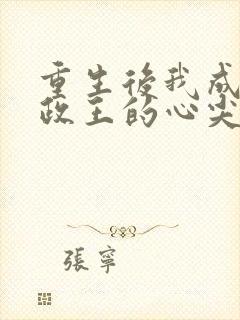 重生後我成
政王的心尖
張寧